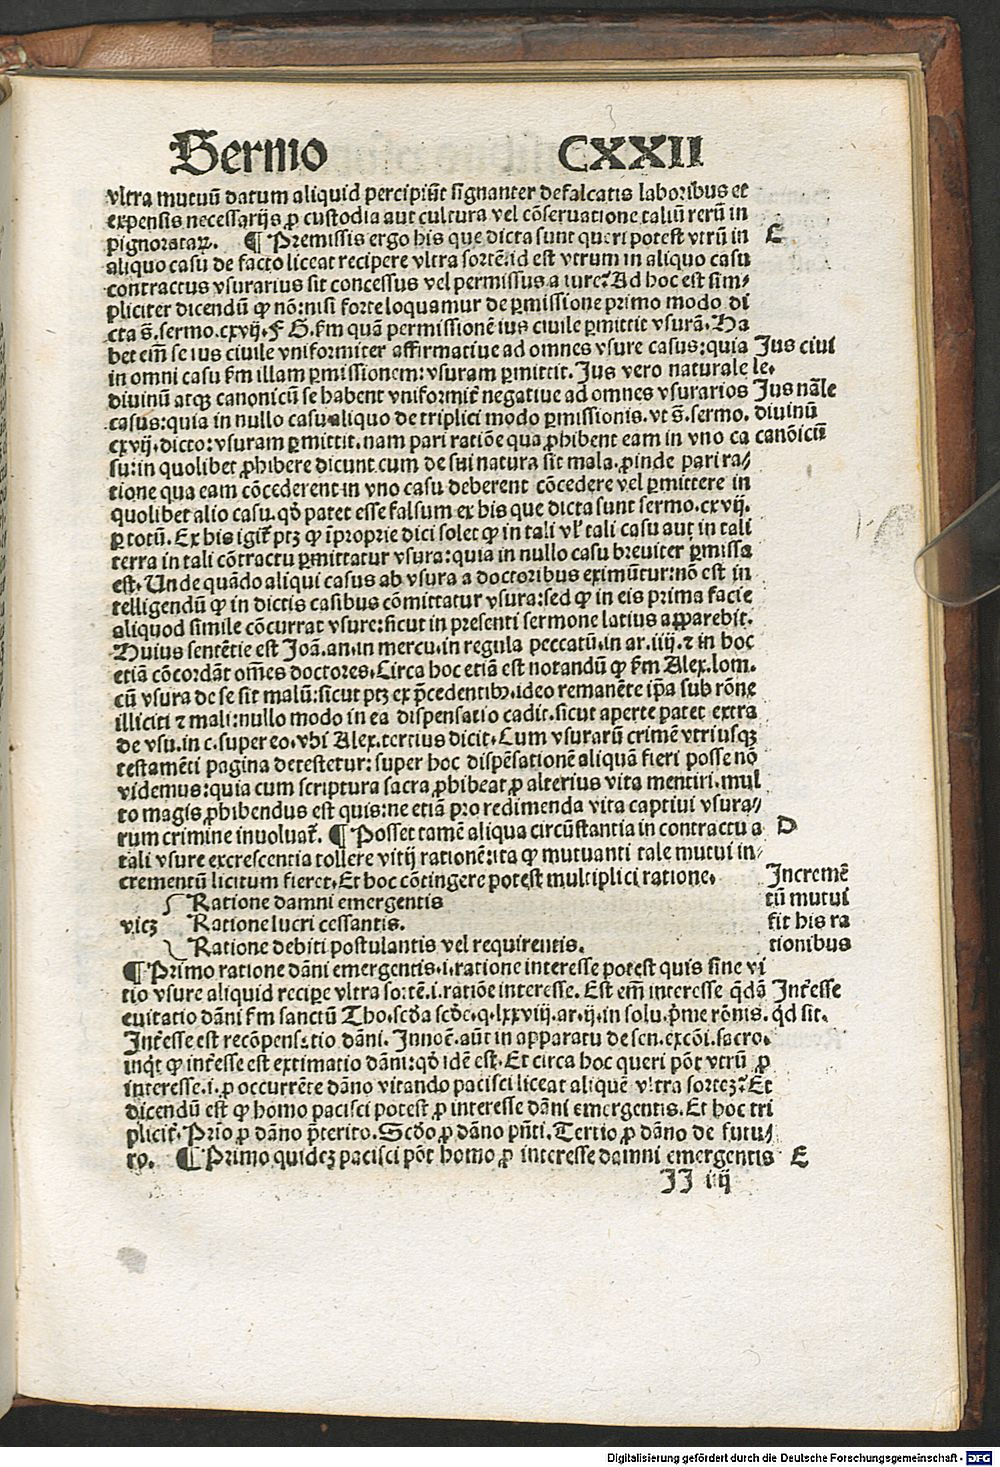 Sermo CXXII
vltra mutuū datum aliquid percipiūt signanter defalcatis laboribus et
expensis necessarijs ꝓ custodia aut cultura vel cōseruatione taliū rerū in
pignoratarꝝ. ¶ Premissis ergo his que dicta sunt queri potest vtrū in C
aliquo casu de facto liceat recipere vltra sortē.id est vtrum in aliquo casu
contractus vsurarius sit concessus vel permissus a iure? Ad hoc est sim⸗
pliciter dicendū ꝙ nō:nisi forte loquamur de ꝑmissione primo modo di
cta s̄.sermo.cxvij.F G.fm quā permissionē ius ciuile ꝑmittit vsurā.Ha
bet em̄ se ius ciuile vniformiter affirmatiue ad omnes vsure casus:quia Jus ciui
in omni casu fm illam ꝑmissionem:vsuram ꝑmittit.Jus vero naturale le.
diuinū atqꝫ canonicū se habent vniformit̄ negatiue ad omnes vsurarios Jus nāle
casus:quia in nullo casu aliquo de triplici modo ꝑmissionis.vt s̄.sermo. diuinū
cxvij.dicto:vsuram ꝑmittit.nam pari ratiōe qua ꝓhibent eam in vno ca canōicū
su:in quolibet ꝓhibere dicunt cum de sui natura sit mala.ꝓinde pari ra⸗
tione qua eam cōcederent in vno casu deberent cōcedere vel ꝑmittere in
quolibet alio casu.qđ patet esse falsum ex his que dicta sunt sermo.cxvij.
ꝑ totū.Ex his igit̄ ptꝫ ꝙ īproprie dici solet ꝙ in tali vl' tali casu aut in tali
terra in tali cōtractu ꝑmittatur vsura:quia in nullo casu breuiter ꝑmissa
est.Unde quādo aliqui casus ab vsura a doctoribus eximūtur:nō est in
telligendū ꝙ in dictis casibus cōmittatur vsura:sed ꝙ in eis prima facie
aliquod simile cōcurrat vsure:sicut in presenti sermone latius apparebit.
Huius sentētie est Joā.an.in mercu.in regula peccatū.in ar.iiij.⁊ in hoc
etiā cōcordāt om̄es doctores.Circa hoc etiā est notandū ꝙ fm Alex.lom.
cū vsura de se sit malū:sicut ptꝫ ex p̄cedentibꝰ.ideo remanēte ip̄a sub rōne
illiciti ⁊ mali:nullo modo in ea dispensatio cadit.sicut aperte patet extra
de vsu.in c.super eo.vbi Alex.tertius dicit.Cum vsurarū crimē vtriusqꝫ
testamēti pagina detestetur:super hoc dispēsationē aliquā fieri posse nō
videmus:quia cum scriptura sacra ꝓhibeat ꝓ alterius vita mentiri.mul
to magis ꝓhibendus est quis:ne etiā pro redimenda vita captiui vsura⸗
rum crimine inuoluat̄. ¶ Posset tamē aliqua circūstantia in contractu a D
tali vsure excrescentia tollere vitij rationē:ita ꝙ mutuanti tale mutui in⸗
crementū licitum fieret.Et hoc cōtingere potest multiplici ratione. Incremē
Ratione damni emergentis tū mutui
vicꝫ Ratione lucri cessantis. fit his ra
Ratione debiti postulantis vel requirentis. tionibus
¶ Primo ratione dāni emergentis.i.ratione interesse potest quis sine vi
tio vsure aliquid recipe vltra sortē.i.ratiōe interesse.Est em̄ interesse q̄dā Int̄esse
euitatio dāni fm sanctū Tho.scđa scđe.q.lxxviij.ar.ij.in solu.p̄me rōnis. qđ sit.
Int̄esse est recōpensatio dāni.Innocē.aūt in apparatu de sen.excōi.sacro.
inqt̄ ꝙ int̄esse est extimatio dāni:qđ idē est.Et circa hoc queri pōt vtrū ꝓ
interesse.i.ꝓ occurrēte dāno vitando pacisci liceat aliquē vltra sorteꝫ?Et
dicendū est ꝙ homo pacisci potest ꝓ interesse dāni emergentis.Et hoc tri
plicit̄.Prīo ꝓ dāno p̄terito.Scđo ꝓ dāno pn̄ti.Tertio ꝓ dāno de futu⸗
ro. ¶ Primo quideꝫ pacisci pōt homo ꝓ interesse damni emergentis E
II iij
Digitalisierung gefördert durch die Deutsche Forschungsgemeinschaft - DFG